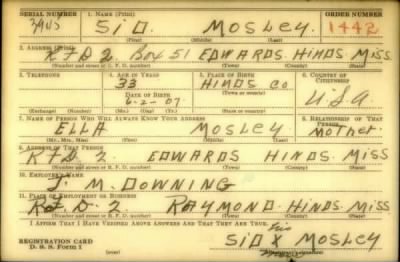 SERIAL NUMBER 1. NAME (Print) ORDER NUMBER
SID. MOSLEY 1442
(First) (Middle) (Last)
2. ADDRESS (Print)
R+D 2 Box 51 EDWARDS. HINDS MISS
(Number and street or R. F. D. number) (Town) (County) (State)
3. TELEPHONE 4. AGE IN YEARS 5. PLACE OF BIRTH 6. COUNTRY OF CITIZENSHIP
33 HINDS CO
DATE OF BIRTH (Town or county)
6-2-07. U.S.A
(Exchange) (Number) (Mo.) (Day) (Yr.) (State or country)
7. NAME OF PERSON WHO WILL ALWAYS KNOW YOUR ADDRESS 8. RELATIONSHIP OF THAT PERSON
ELLA MOSLEY MOTHER
(Mr., Mrs., Miss) (First) (Middle) (Last)
9. ADDRESS OF THAT PERSON
R+D. 2 EDWARDS HINDS MISS
(Number and street or R. F. D. number) (Town) (County) (State)
10. EMPLOYER'S NAME
J. M. DOWNING
11. PLACE OF EMPLOYMENT OR BUSINESS
R+D-2 RAYMOND. HINDS. MISS
(Number and street or R. F. D. number) (Town) (County) (State)
I AFFIRM THAT I HAVE VERIFIED ABOVE ANSWERS AND THAT THEY ARE TRUE.
his
SID X MOSLEY
REGISTRATION CARD
D. S. S. Form 1 (Registrant's signature)